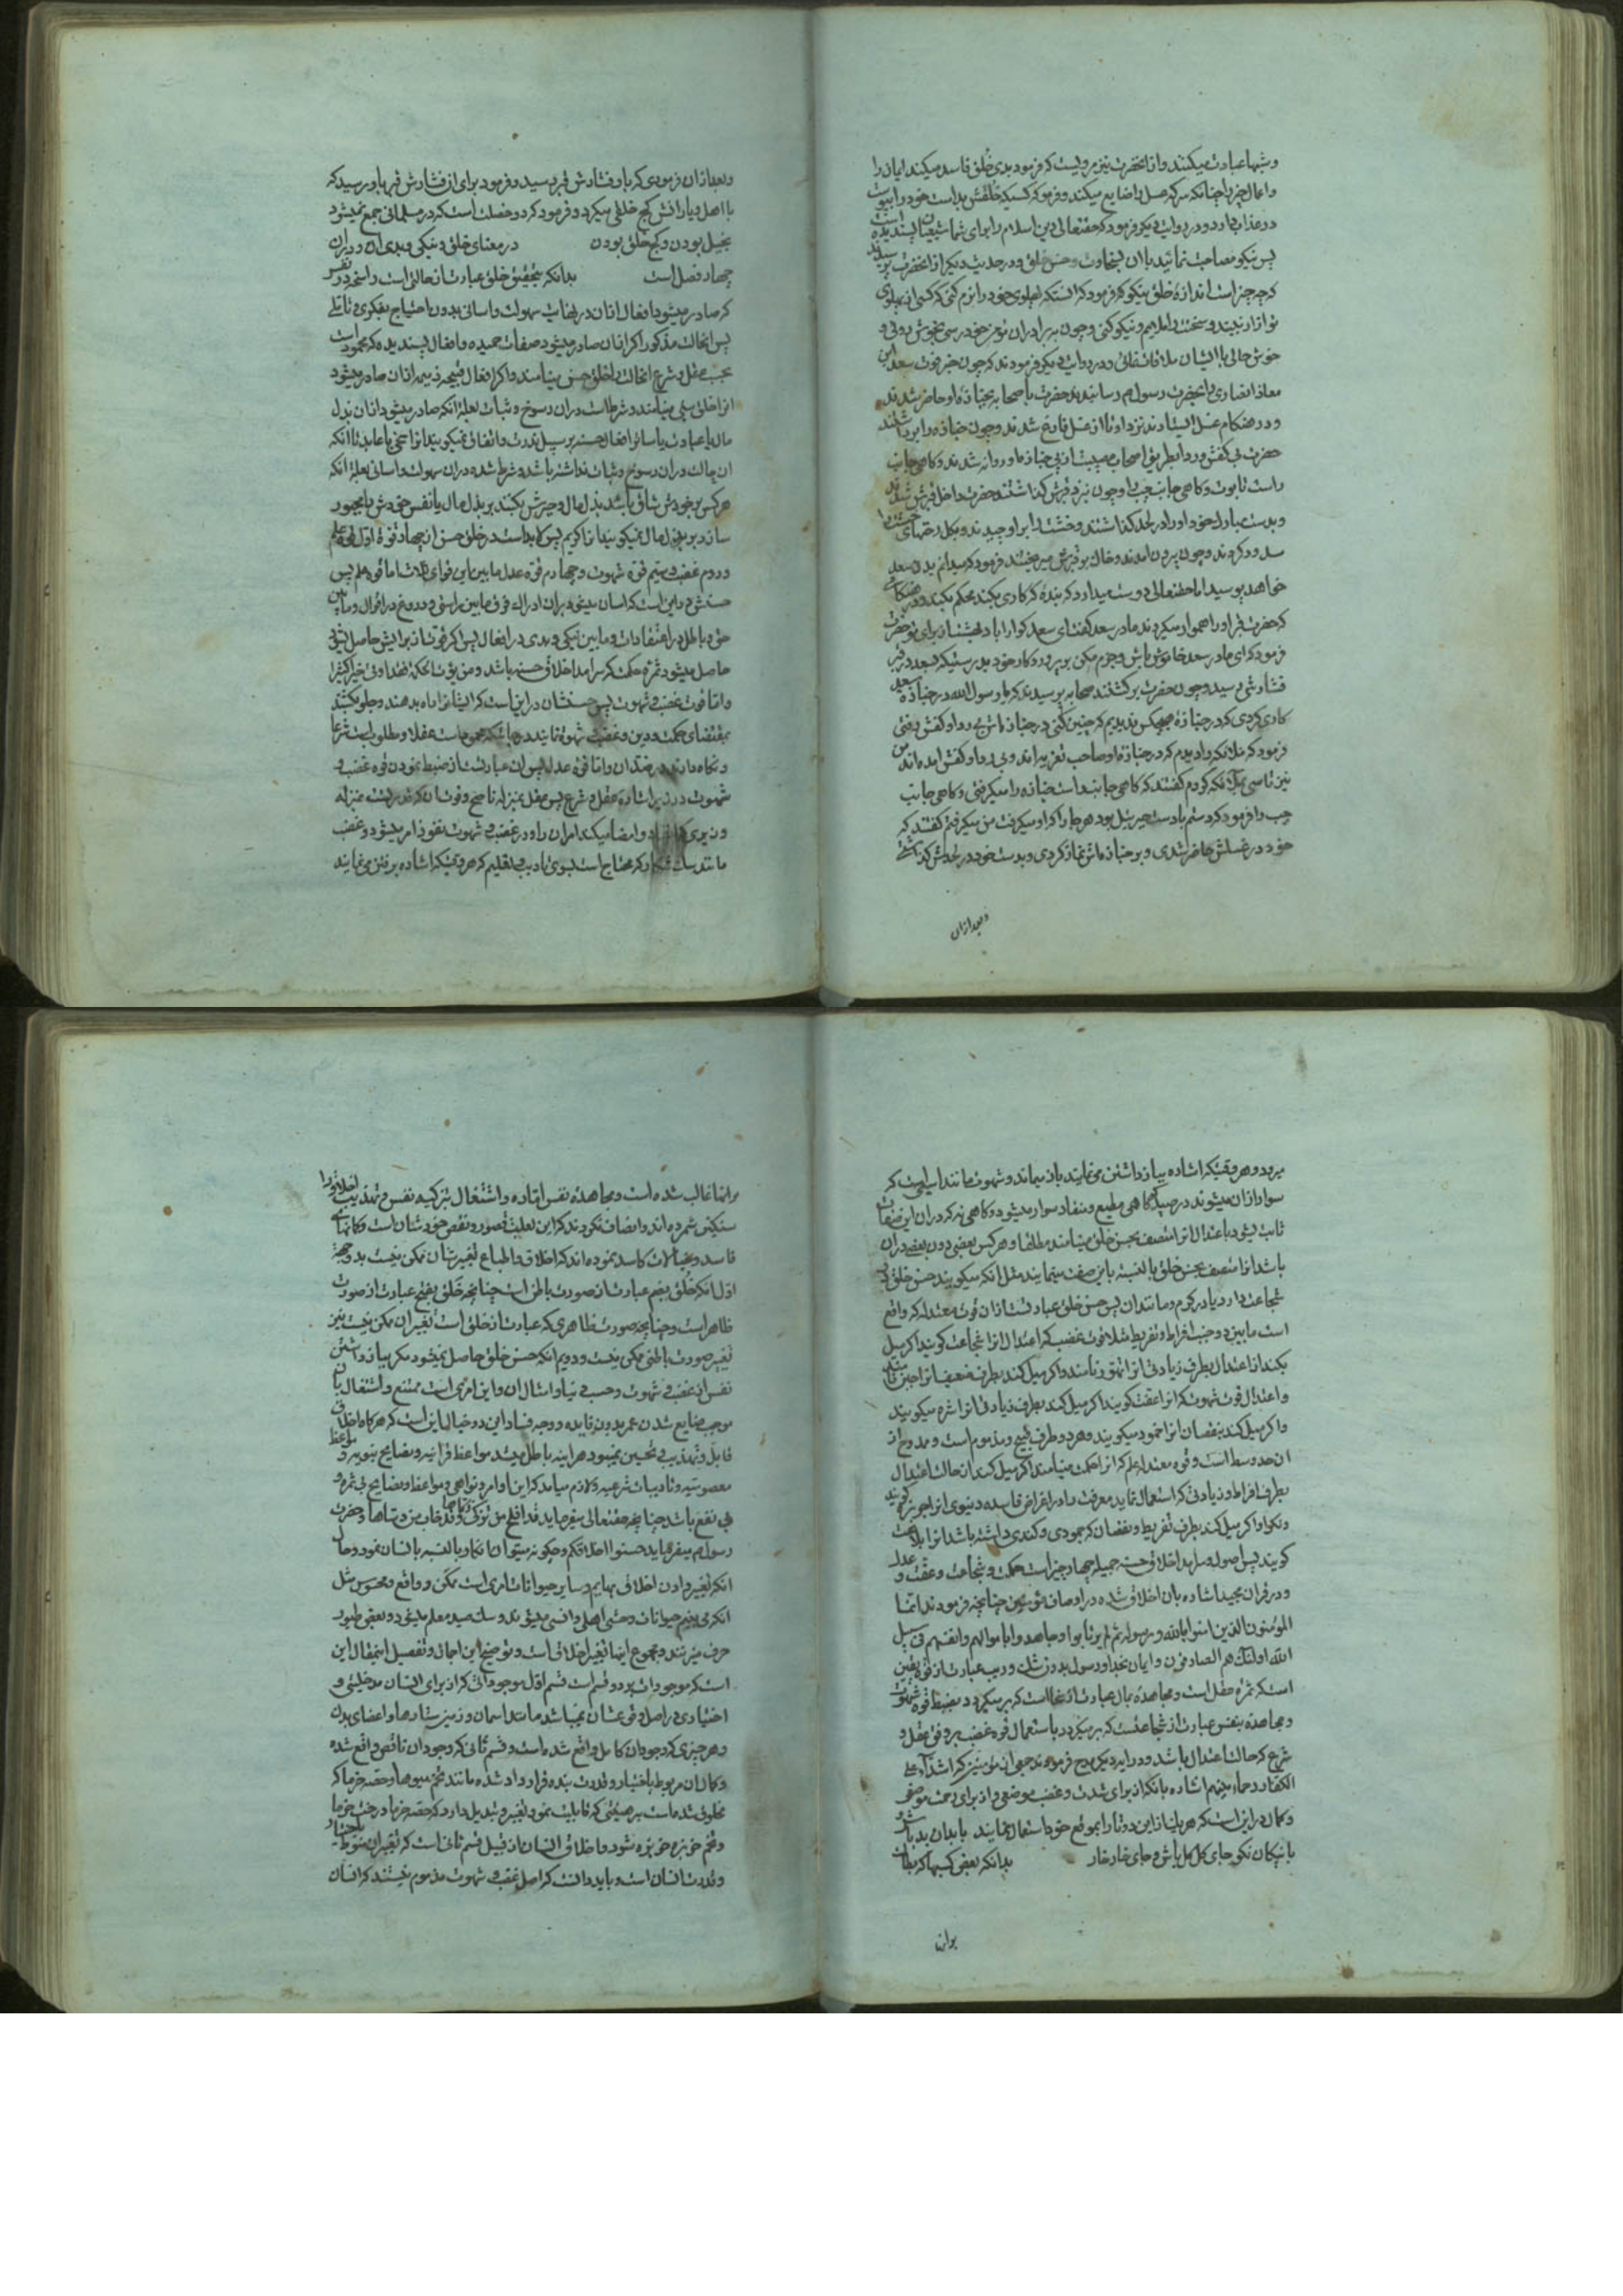 وشبها عبادت میکنند و از انحضرت نیز مرویست که فرمود بدی خلق فاسد میکند ایمان را
و اعمال خیر را چنانکه سرکه عسل را ضایع میکند و فرمود که کسیکه خلقش بد است خود را پیوست
در عذاب دارد و در روایت دیگر فرمود که حقتعالی دین اسلام را برای شما شیعیان پسندیده است
پس نیکو مصاحبت نمائید با ان بسخاوت و حسن خلق و در حدیث دیگر از انحضرت پرسیدند
که چه چیز است اندازه خلق نیکو که فرمود که انستکه پهلوی خود را نرم کنی که کسی از پهلوی
تو ازار نبیند و سخنت را ملایم و نیکو کنی و چون به برادران مؤمن خود رسی بخوش روئی و
خوش حالی با ایشان ملاقات نمائی و در روایت دیگر فرمودند که چون خبر فوت سعد ابن
معاذ انصاری را بحضرت رسول م رسانیدند حضرت با صحابه بجنازه او حاضر شدند
و در هنکام غسل ایستادند نزد او تا از غسل فارغ شدند و چون جنازه را برداشتند
حضرت بی کفش و ردا بطریق اصحاب مصیبت از پی جنازه او روانه شدند و کاهی جانب
راست تابوت و کاهی جانب چپ را و چون نزد قبرش کذاشتند حضرت داخل قبرش شدند
و بدست مبارک خود او را در لحد کذاشتند و خشت را بر او چیدند و بکل رخنهای خشت را
مسدود کردند و چون بیرون امدند و خاک بر قبرش میریختند فرمود که میدانم بدن سعد
خواهد پوسید اما حقتعالی دوست میدارد که بنده که کاری بکند محکم بکند و در هنکامی
که حضرت قبر او را هموار میکردند مادر سعد کفت ای سعد کوارا باد بهشت از برای تو حضرت
فرمود که ای مادر سعد خاموش باش و جزم مکن بر پروردکار خود بدرستیکه بسعد در قبر
فشارش رسید و چون حضرت برکشتند صحابه پرسیدند که یا رسول الله در جنازه سعد
کاری کردی که در جنازه هیچکس ندیدیم که چنین کنی در جنازه اش بی ردا و کفش رفتی
فرمود که ملائکه را دیدم که در جنازه او صاحب تعزیه اند و بی ردا و کفش امده اند من
نیز تاسی بملائکه کردم کفتند که کاهی جانب راست جنازه را میکرفتی و کاهی جانب
چپ را فرمود که دستم با دست جبرئیل بود هر جا را که او میکرفت من میکرفتم کفتند که
خود در غسلش حاضر شدی و بر جنازه اش نماز کردی و بدست خود در لحدش کذاشتی
و بعد از ان
و بعد از ان فرمودی که باو فشارش قبر رسید و فرمود برای ان فشارش قبر باو رسید که
با اهل دیارانش کج خلقی میکرد و فرمود که دو خصلت است که در مسلمانی جمع نمیشود
بخیل بودن و کج خلق بودن در معنای خلق و نیکی و بدی ان و در ان
چهار فصل است بدانکه بتحقیق خلق عبارت از حالتی است راسخ در نفس
که صادر میشود افعال از ان در نهایت سهولت و اسانی بدون احتیاج بفکری و تاملی
پس انحالت مذکور اکر از ان صادر میشود صفات حمیده و افعال پسندیده که محمود است
بحسب عقل و شرع انحالت را خلق حسن مینامند و اکر افعال قبیحه ذمیمه از ان صادر میشود
انرا خلق سئ مینامند و شرط است در ان رسوخ و ثبات بعلة انکه صادر میشود از ان بذل
مال یا عبادت یا سائر افعال حسنه بر سبیل ندرت و اتفاق نمیکویند انرا سخی یا عابد تا انکه
ان حالت در ان رسوخ و ثبات نداشته باشد و شرط شده در ان سهولت و اسانی بعلة انکه
هر کس بر خودش شاق باشد بذل مال و چیزش بکند بر بذل مال یا نفس خودش را مجبور
سازد بر بذل مال نمیکویند انرا کریم پس لابد است در خلق حسن از چهار قوه اول قوه علم
و دوم غضب و سیم قوه شهوت و چهارم قوه عدل مابین این قوای ثلاث اما قوه علم پس
حسنش در این است که اسان میشود بر ان ادراک فرق مابین راستی و دروغ در اقوال و مابین
حق و باطل در اعتقادات و مابین نیکی و بدی در افعال پس اکر قوت از برایش حاصل شود
حاصل میشود ثمره حکمت که سرامد اخلاق حسنه باشد و من یؤت الحکمة فقد اوتی خیرا کثیرا
و اما قوت غضب و شهوت پس حسنشان در این است که ایشانرا راه بدهند و جلو بکشند
بمقتضای حکمت و دین و غضب و شهوة نمایند در جائیکه ممدوحست عقلا و مطلوبست شرعا
و نکاه دارند در ضد ان و اما قوة عدل پس ان عبارتست از ضبط نمودن قوه غضب و
شهوت در زیر اشاره عقل و شرع پس عقل بمنزله ناصح و قوت ان که قدرتست بمنزله
وزیری که و امضا میکند امر ان را و در غضب و شهوت نفوذ امر میشود و غضب
مانند سک شکار که محتاج است بسوی تادیب و تعلیم که هر وقتیکه اشاره برفتن مینمایند
میرود و هر وقتیکه اشاره بباز داشتن مینمایند باز میماند و شهوت مانند اسبی است که
سوار از ان میشوند در صیدکاهی مطیع و منقاد سوار میشود و کاهی نه که در ان این صفات
ثابت میشود باعتدال انرا متصف بحسن خلق مینامند مطلقا و هر کس بعضی دون بعضی در ان
باشد انرا متصف بحسن خلق بالنسبه باین صفت مینمایند مثل انکه میکویند حسن خلق در
شجاعت دارد یا در کرم و مانند ان پس حسن خلق عبارتست از ان قوت معتدله که واقع
است مابین دو جنب افراط و تفریط مثلا قوت غضب که اعتدال انرا شجاعت کویند اکر میل
بکند از اعتدال بطرف زیادتی انرا تهور نامند و اکر میل کند بطرف ضعف انرا جبن نامند
و اعتدال قوت شهوت که انرا عفت کویند اکر میل کند بطرف زیادتی انرا شره میکویند
و اکر میل کند بنقصان انرا خمود میکویند و هر دو طرف قبیح و مذموم است و ممدوح از
ان حد وسط است و قوه معتدله علم که انرا حکمت مینامند اکر میل کند از حالت اعتدال
بطرف افراط و زیادتی که استعمال نماید معرفت را در اغراض فاسده دنیوی انرا جربزه کویند
و نکرا و اکر میل کند بطرف تفریط و نقصان که جمودی و کندی داشته باشد انرا بلاهت
کویند پس اصول و سرامد اخلاق حسنه جمیله چهار چیز است حکمت و شجاعت و عفت و عدل
و در قران مجید اشاره بان اخلاق شده در اوصاف مؤمنین چنانچه فرمودند انما
المؤمنون الذین امنوا بالله و رسوله ثم لم یرتابوا و جاهدوا باموالهم و انفسهم فی سبیل
الله اولئک هم الصادقون و ایمان بخدا و رسول بدون شک و ریب عبارت از قوة یقین
است که ثمره عقل است و مجاهده بمال عبارت از سخا است که برمیکردد بضبط قوه شهوت
و مجاهده بنفس عبارت از شجاعتست که برمیکردد باستعمال قوه غضب بر وفق عقل و
شرع که حالت اعتدال باشد و در ایه دیکر مدح فرمودند جمعی از مؤمنین که اشداء علی
الکفار رحماء بینهم اشاره بانکه از برای شدت و غضب موضعی و از برای رحمت موضعی
و کمال در این است که هر یک از این دو تا را بموقع خود استعمال نمایند با بدان بد باش و
با نیکان نکو جای کل کل باش و جای خار خار بدانکه بعضی کسها که بطالت
بر انها
بر انها غالب شده است و مجاهده نفس اماره و اشتغال بتزکیه نفس و تهذیب اخلاق را
سنکین شمرده اند و انصاف نکردند که این بعلت قصور و نقص خودشان است و کمانهای
فاسد و خیالات کاسد نموده اند که اخلاق و الطباع تغییرشان ممکن نیست بدو جهة
اول انکه خلق بضم عبارت از صورت باطن است چنانچه خلق بفتح عبارت از صورت
ظاهر است و چنانچه صورت ظاهری که عبارت از خلق است تغییر ان ممکن نیست نیز
تغییر صورت باطنی ممکن نیست و دویم انکه حسن خلق حاصل نمیشود مکر بباز داشتن
نفس از غضب و شهوت و حب دنیا و امثال ان و این امری است ممتنع و اشتغال بان
موجب ضایع شدن عمر بدون فایده و وجه فساد این دو خیال این است که هر کاه اخلاق
قابل و تهذیب و تحسین نمیبود هر اینه باطل میشد مواعظ قرانیه و نصایح نبویه و مواعظ
معصومیه و تادیبات شرعیه و لازم میامد که این اوامر و نواهی و مواعظ و نصایح بی ثمره و
بی نفع باشد چنانچه حقتعالی میفرماید قد افلح من تزکی و قد خاب من دسیها و حضرت
رسول م میفرماید حسنوا اخلاقکم و چکونه میتوان انکار بالنسبه بانسان نمود و حال
انکه تغییر دادن اخلاق بهایم و سایر حیوانات امری است ممکن و واقع و محسوس مثل
انکه می بینیم حیوانات وحشی اهلی و انسی میشوند و سک صید معلم میشود و بعضی طیور
حرف میزنند و مجموع اینها تغییر اخلاق است و توضیح این اجمال و تفصیل اینمقال این
است که موجودات بر دو قسم است قسم اول موجوداتی که از برای انسان مدخلیتی و
اختیاری در اصل و فرعشان نمیباشد مانند اسمان و زمین و ستارها و اعضای بدن
و هر چیزی که وجودان کامل واقع شده است و قسم ثانی که وجودان ناقص واقع شده
و کمال ان مربوط باختیار و قدرت بنده قرار داد شده مانند تخم میوها و حصه خرما که
مخلوق شده است بر هیئتی که قابلیت نمو و تغییر و تبدیل دارد که حصه خرما درخت خرما
و تخم خربزه خربزه شود و اخلاق انسان از قبیل قسم ثانی است که تغییر ان منوط باختیار
و قدرت انسان است و باید دانست که اصل غضب و شهوت مذموم نیستند که انسان